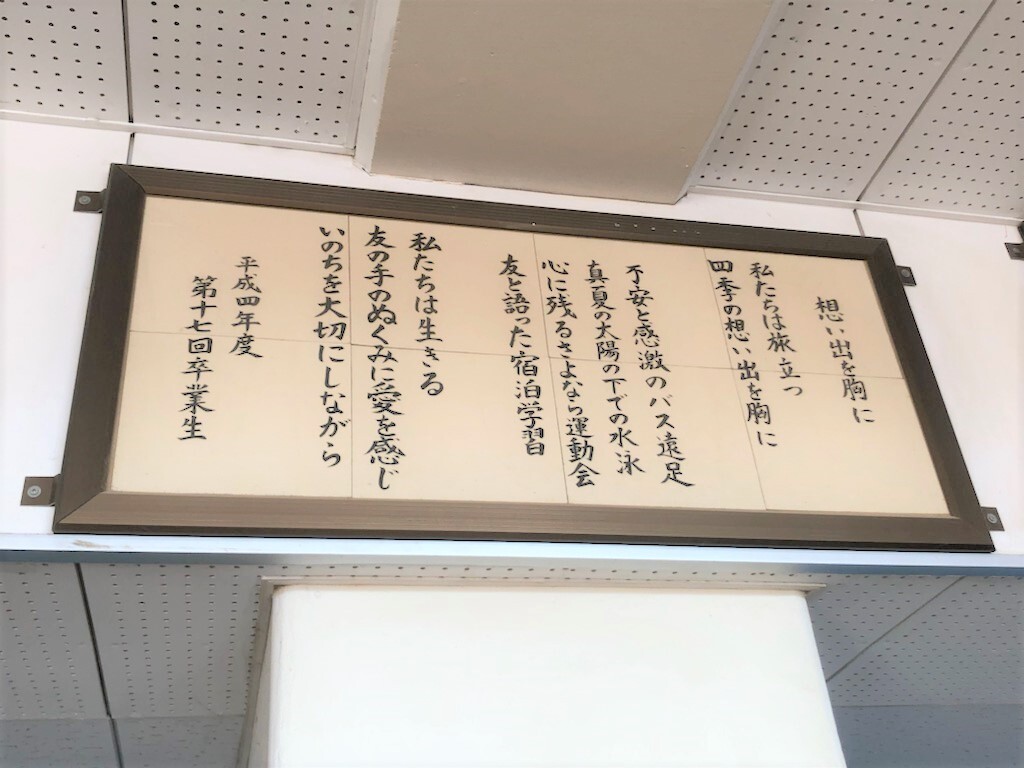 想い出を胸に
私たちは旅立つ
四季の想い出を胸に
不安と感激のバス遠足
真夏の太陽の下での水泳
心に残るさよなら運動会
友と語った宿泊学習
私たちは生きる
友の手のぬくみに愛を感じ
いのちを大切にしながら
平成四年度
第十七回卒業生